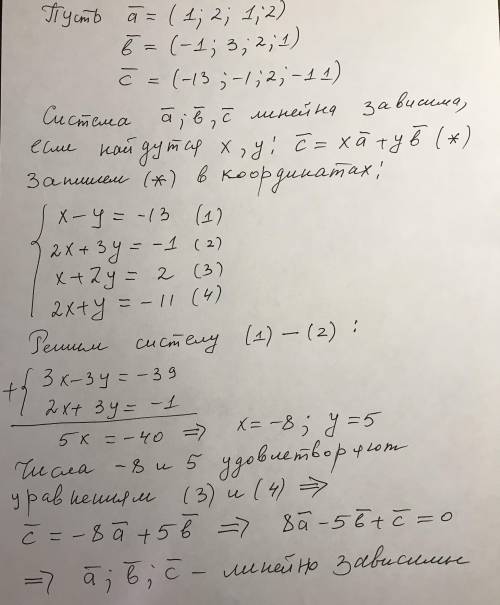 Пусть a̅ = (1; 2; 1; 2)
b̅ = (-1; 3; 2; 1)
c̅ = (-13; -1; 2; -11)
Система a̅; b̅, c̅ линейна зависима,
если найдутся x, y: c̅ = xa̅ + yb̅ (*)
Запишем (*) в координатах:
x - y = -13 (1)
2x + 3y = -1 (2)
x + 2y = 2 (3)
2x + y = -11 (4)
Решим систему (1) - (2):
+ { 3x - 3y = -39
2x + 3y = -1
5x = -40 ⇒ x = -8; y = 5
Числа -8 и 5 удовлетворяют
уравнениям (3) и (4) ⇒
c̅ = -8a̅ + 5b̅ ⇒ 8a̅ - 5b̅ + c̅ = 0
⇒ a̅; b̅; c̅ - линейно зависимы